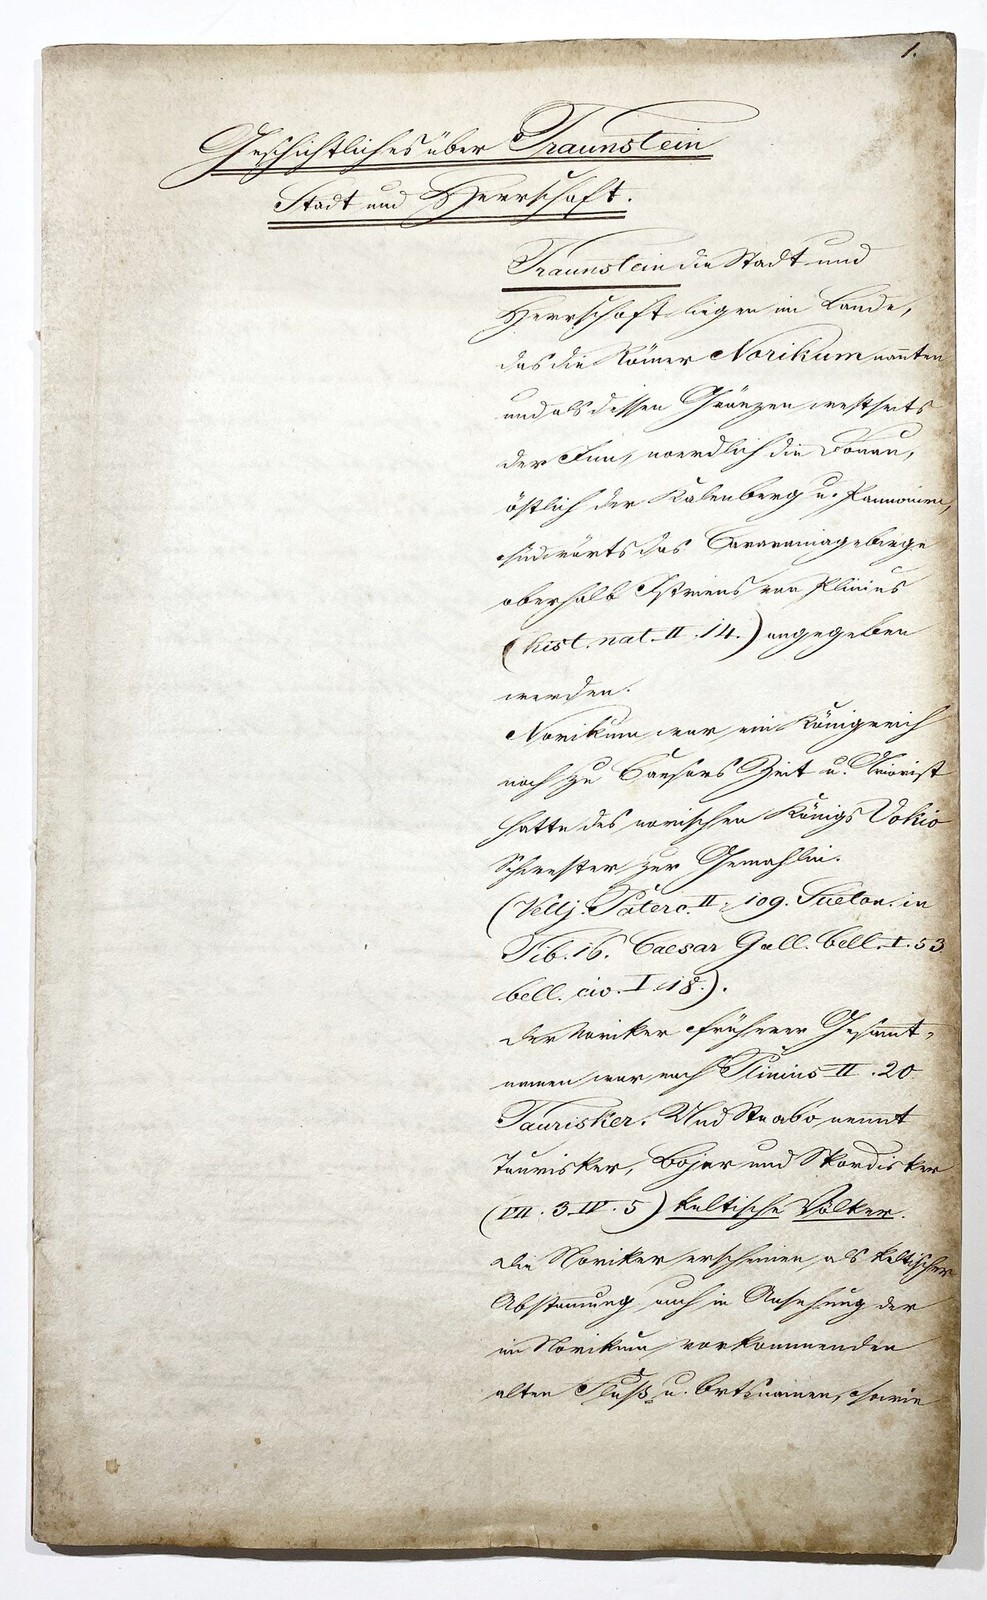 1.
Geschichtliches über Traunstein
Stadt und Herrschaft.
Traunstein die Stadt und
Herrschaft liegen im Lande,
das die Römer Norikum nannten
und als dessen Gränzen westseits
der Inn, noerdlich die Donau,
östlich der Kalenberg u. Pannonien,
südwärts das Caravaniagebirge
oberhalb Istriens von Plinius
(hist. nat. II. 14.) angegeben
werden.
Norikum war ein Königreich
noch zu Caesars Zeit u. Ariovist
hatte des norischen Königs Vokio
Schwester zur Gemahlin.
(Vellj. Paterc. II. 109. Sueton. in
Tib. 16. Caesar Gall. bell. I. 53
bell. civ. I. 18.).
Der Noriker früherer Gesammt-
namen war nach Plinius II. 20
Taurisker. Und Strabo nennt
Taurisker, Bojer und Skordisker
(VII. 3 IV. 5) keltische Völker.
Die Noriker erscheinen als keltischer
Abstammung auch in Ansehung der
im Norikum vorkommenden
alten Fluß- u. Ortsnamen, sowie